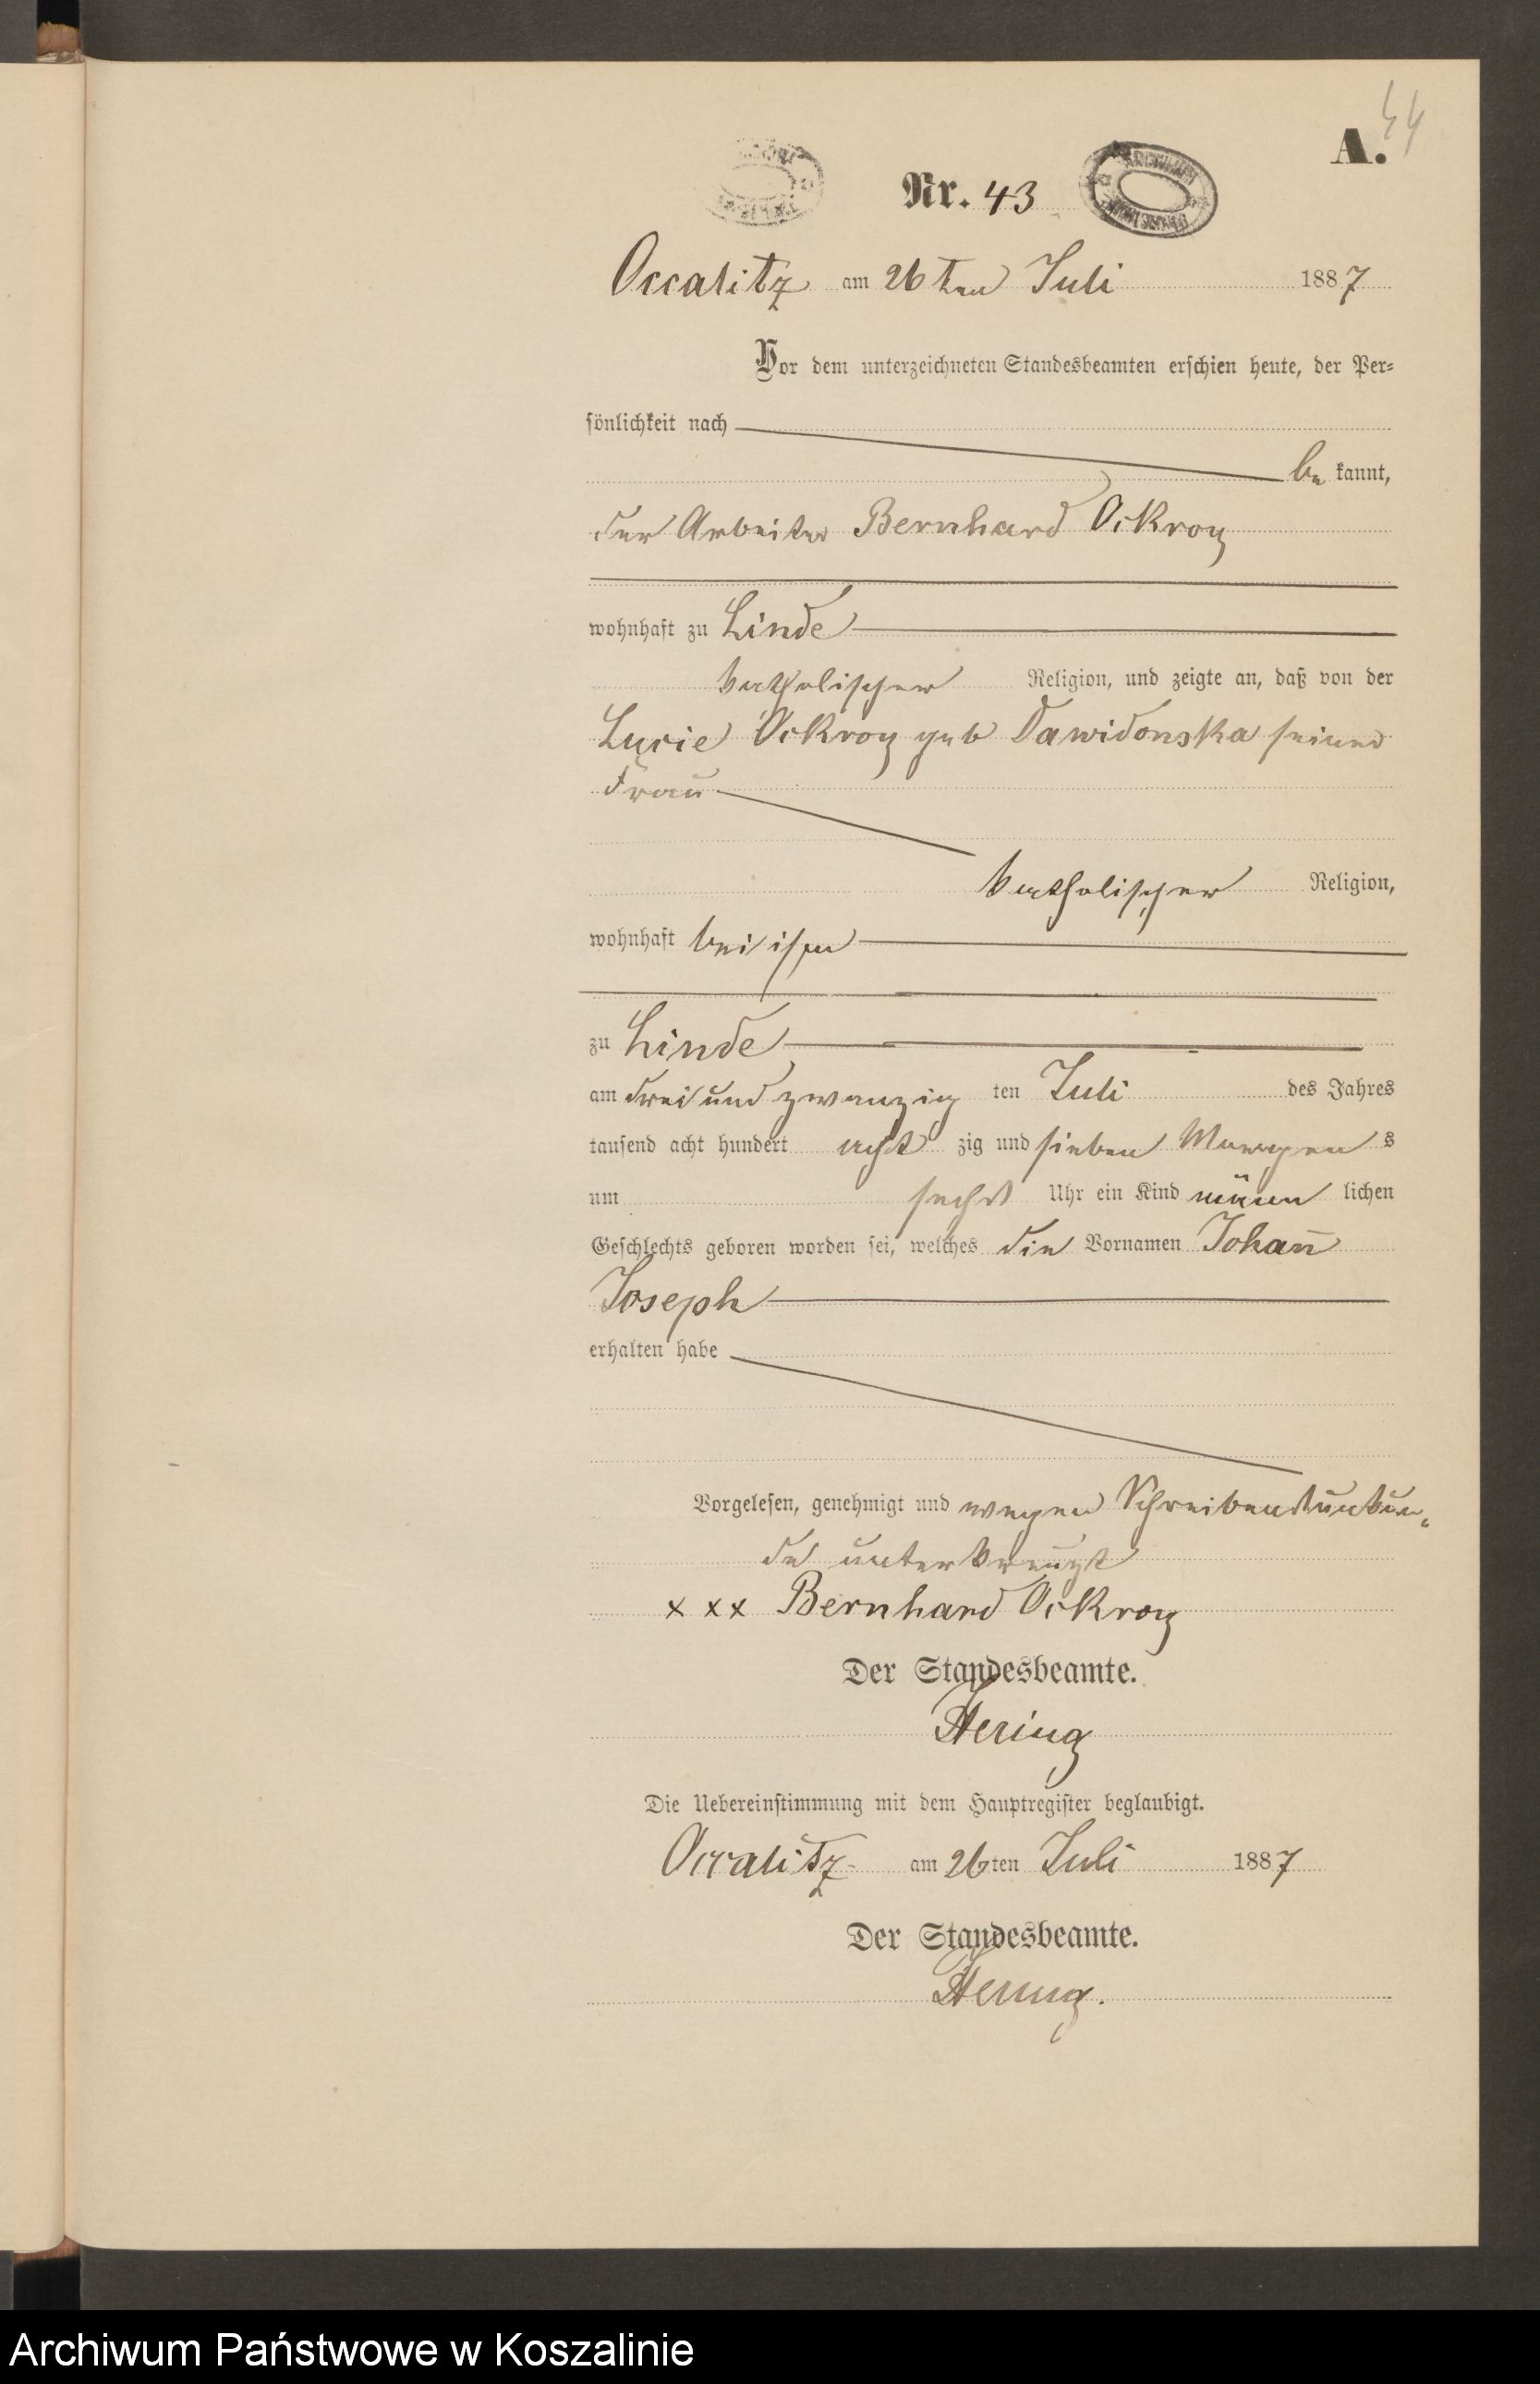 44
A.
Nr. 43
ARCHIWUM
Occalitz am 26ten Juli 1887
Vor dem unterzeichneten Standesbeamten erschien heute, der Per-
sönlichkeit nach
be kannt,
der Arbeiter Bernhard Ockroy
wohnhaft zu Linde
katholischer Religion, und zeigte an, daß von der
Lucie Ockroy geb Dawidonska seiner
Frau
katholischer Religion,
wohnhaft bei ihm
zu Linde
am drei und zwanzig ten Juli des Jahres
tausend acht hundert acht zig und sieben Morgen s
um sechs Uhr ein Kind männ lichen
Geschlechts geboren worden sei, welches die Vornamen Johan̄
Joseph
erhalten habe
Vorgelesen, genehmigt und wegen Schreibensunkun-
de unterkreuzt
x x x Bernhard Ockroy
Der Standesbeamte.
Hering
Die Uebereinstimmung mit dem Hauptregister beglaubigt.
Occalitz am 26ten Juli 1887
Der Standesbeamte.
Hering.
Archiwum Państwowe w Koszalinie